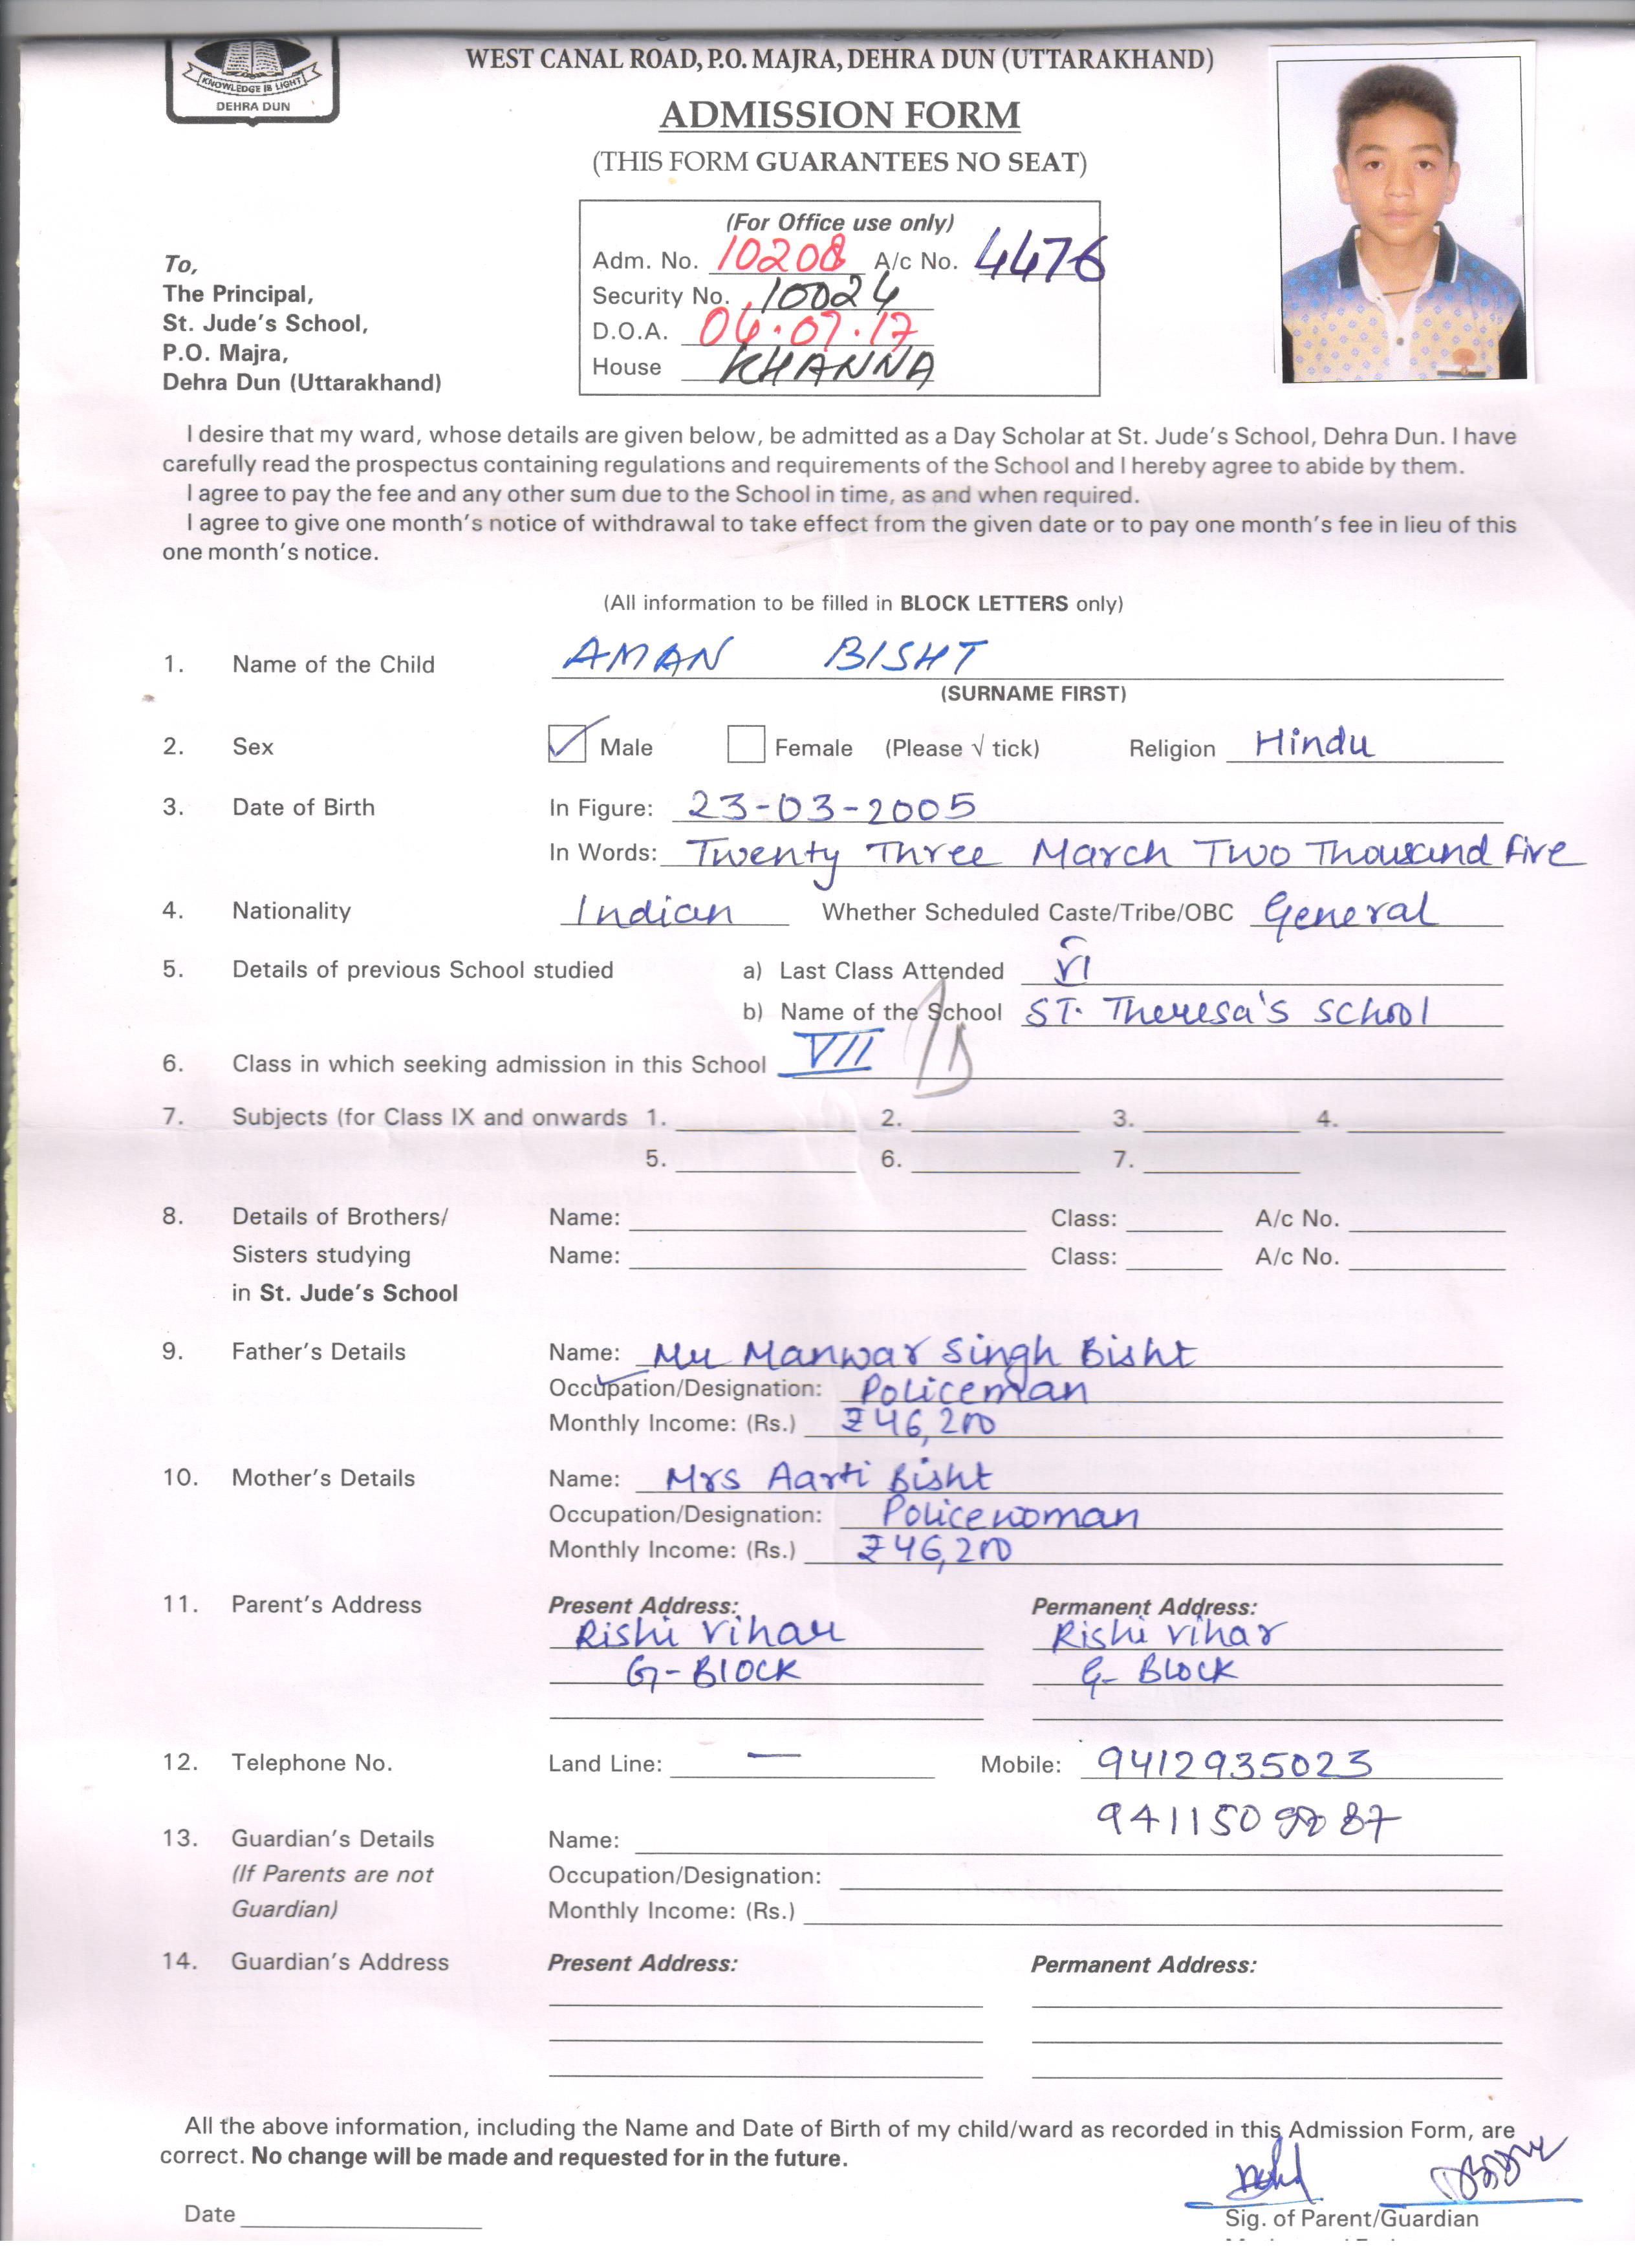 KNOWLEDGE IS LIGHT
DEHRA DUN
WEST CANAL ROAD, P.O. MAJRA, DEHRA DUN (UTTARAKHAND)
ADMISSION FORM
(THIS FORM GUARANTEES NO SEAT)
(For Office use only)
Adm. No. 10208 A/c No. 4476
Security No. 10024
D.O.A. 04.07.17
House KHANNA
To,
The Principal,
St. Jude's School,
P.O. Majra,
Dehra Dun (Uttarakhand)
I desire that my ward, whose details are given below, be admitted as a Day Scholar at St. Jude's School, Dehra Dun. I have
carefully read the prospectus containing regulations and requirements of the School and I hereby agree to abide by them.
I agree to pay the fee and any other sum due to the School in time, as and when required.
I agree to give one month's notice of withdrawal to take effect from the given date or to pay one month's fee in lieu of this
one month's notice.
(All information to be filled in BLOCK LETTERS only)
1. Name of the Child AMAN BISHT
(SURNAME FIRST)
2. Sex Male Female (Please √ tick) Religion Hindu
3. Date of Birth In Figure: 23-03-2005
In Words: Twenty Three March Two Thousand Five
4. Nationality Indian Whether Scheduled Caste/Tribe/OBC General
5. Details of previous School studied a) Last Class Attended VI
b) Name of the School ST. Theresa's School
6. Class in which seeking admission in this School VII
7. Subjects (for Class IX and onwards 1. 2. 3. 4.
5. 6. 7.
8. Details of Brothers/ Name: Class: A/c No.
Sisters studying Name: Class: A/c No.
in St. Jude's School
9. Father's Details Name: Mr Manwar Singh Bisht
Occupation/Designation: Policeman
Monthly Income: (Rs.) ₹46,200
10. Mother's Details Name: Mrs Aarti Bisht
Occupation/Designation: Policewoman
Monthly Income: (Rs.) ₹46,200
11. Parent's Address Present Address: Permanent Address:
Rishi Vihar Rishi Vihar
G-BLOCK G-BLOCK
12. Telephone No. Land Line: — Mobile: 9412935023
13. Guardian's Details Name:
(If Parents are not Occupation/Designation:
Guardian) Monthly Income: (Rs.)
14. Guardian's Address Present Address: Permanent Address:
All the above information, including the Name and Date of Birth of my child/ward as recorded in this Admission Form, are
correct. No change will be made and requested for in the future.
Date
Sig. of Parent/Guardian